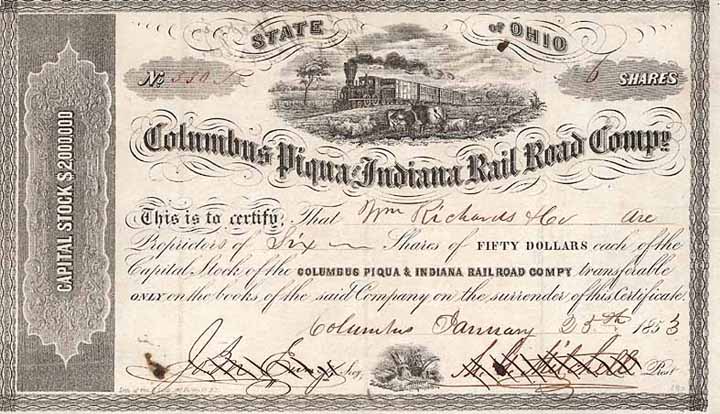 STATE of OHIO
No. 6 SHARES
Columbus Piqua & Indiana Rail Road Compy
CAPITAL STOCK $2000.000
This is to certify; That Wm Richards & Co are
Proprietors of Six Shares of FIFTY DOLLARS each of the
Capital Stock of the COLUMBUS PIQUA & INDIANA RAIL ROAD COMPY transferable
ONLY on the books of the said Company on the surrender of this Certificate.
Columbus January 25th 1853
Secy. Prest